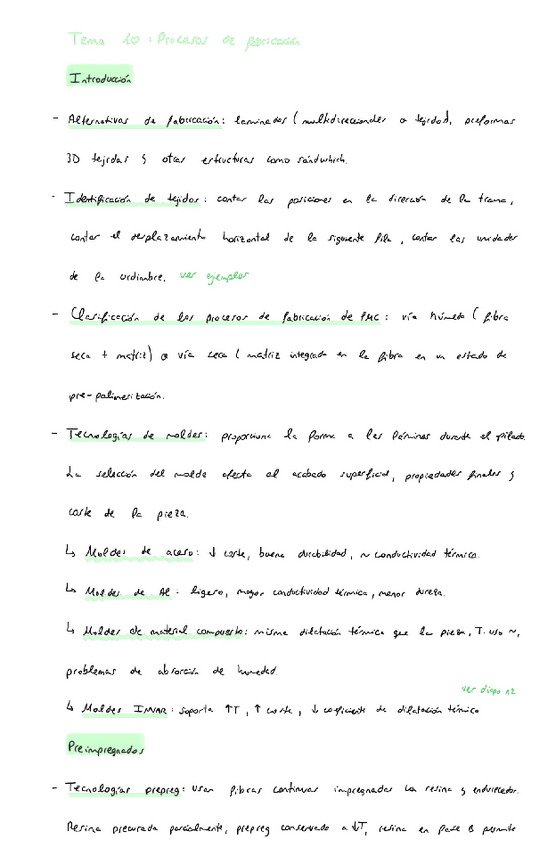 Tema 10: Procesos de fabricación
Introducción
- Alternativas de fabricación: laminados (multidireccionales o tejidos), preformas
3D tejidas y otras estructuras como sándwhich.
- Identificación de tejidos: contar las posiciones en la dirección de la trama,
contar el desplazamiento horizontal de la siguiente fila, contar las unidades
de la urdiembre. ver ejemplos
- Clasificación de los procesos de fabricación de PMC: vía húmeda (fibra
seca + matriz) o vía seca (matriz integrada en la fibra en un estado de
pre-polimerización.
- Tecnologías de moldes: proporciona la forma a las láminas durante el apilado.
La selección del molde afecta al acabado superficial, propiedades finales y
coste de la pieza.
↳ Moldes de acero: ↓ coste, buena durabilidad, ~ conductividad térmica.
↳ Moldes de Al: ligero, mayor conductividad térmica, menor dureza.
↳ Moldes de material compuesto: misma dilatación térmica que la pieza, T. uso ~,
problemas de absorción de humedad.
ver diapo 12
↳ Moldes INVAR: soporta ↑T, ↑ coste, ↓ coeficiente de dilatación térmico
Preimpregnados
- Tecnologías prepreg: usan fibras continuas impregnadas con resina y endurecedor.
Resina precurada parcialmente, prepreg conservado a ↓T, resina en fase B permite